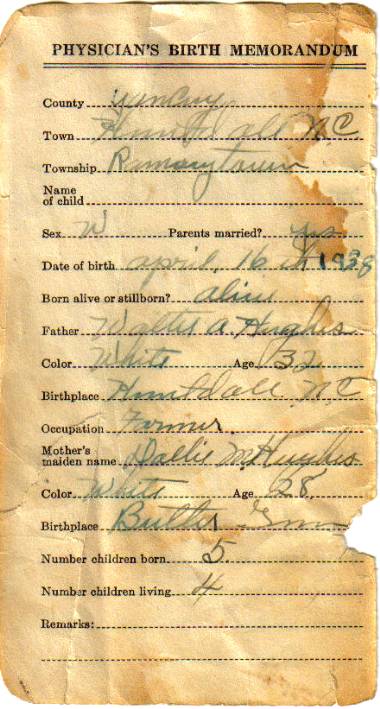 PHYSICIAN'S BIRTH MEMORANDUM
County yancy
Town Huntdale NC
Township Ramseytown
Name
of child
Sex W Parents married? yes
Date of birth april, 16th 1938
Born alive or stillborn? alive
Father Walter A Hughes
Color White Age 32
Birthplace Huntdale NC
Occupation Farmer
Mother's
maiden name Dollie M Hughes
Color White Age 28
Birthplace Butler Tenn
Number children born 5
Number children living 4
Remarks: